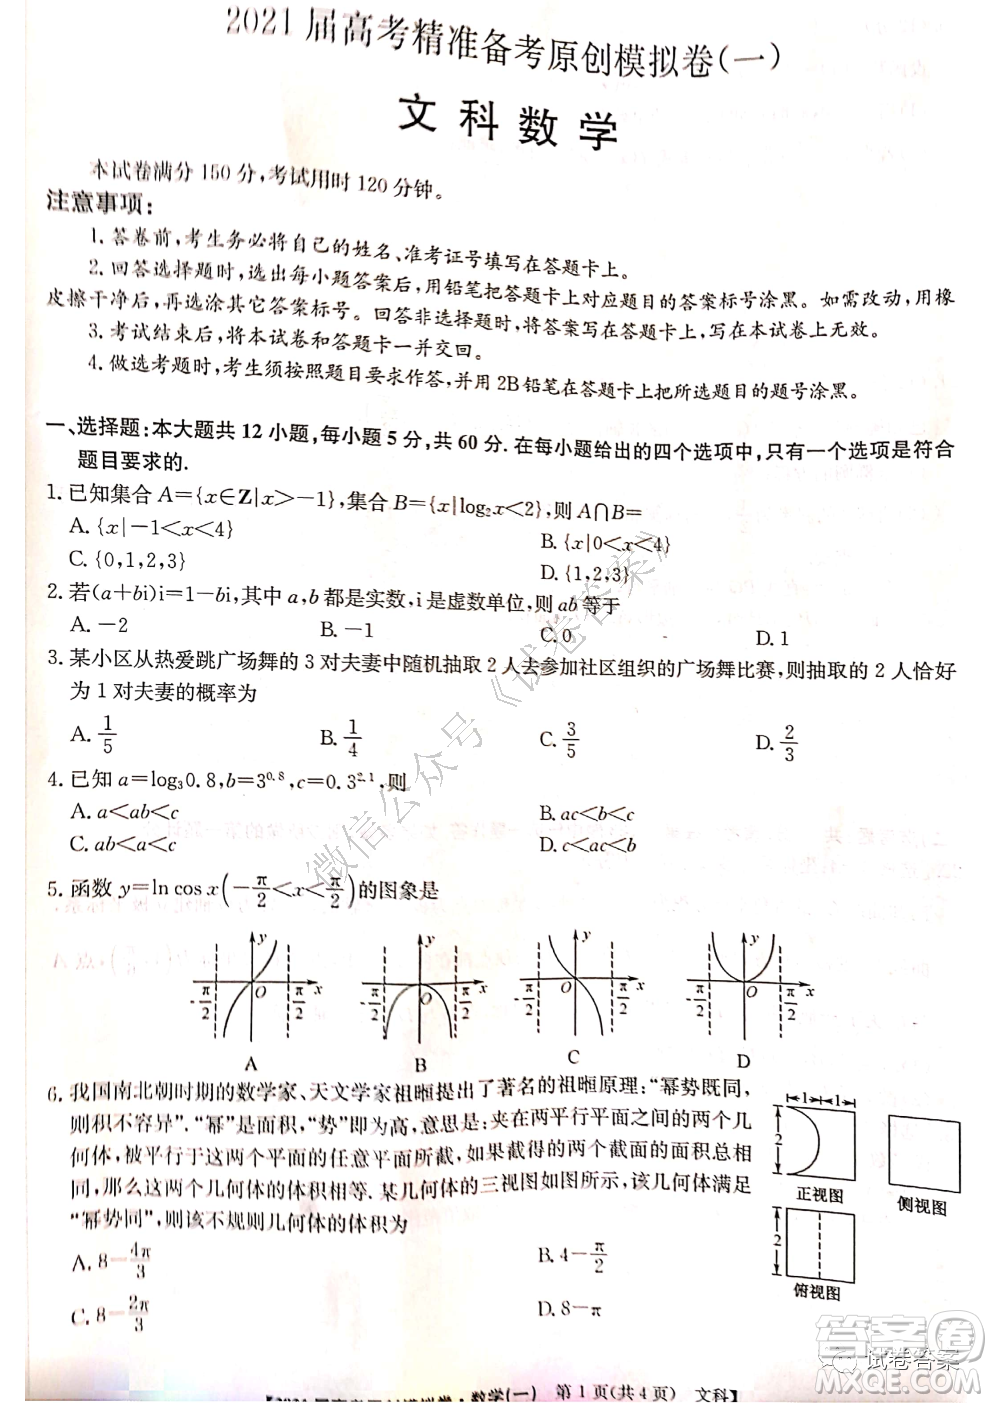 2021届高考精准备考原创模拟卷(一)
文科数学
本试卷满分150分,考试用时120分钟。
注意事项:
1. 答卷前,考生务必将自己的姓名、准考证号填写在答题卡上。
2. 回答选择题时,选出每小题答案后,用铅笔把答题卡上对应题目的答案标号涂黑。如需改动,用橡
皮擦干净后,再选涂其它答案标号。回答非选择题时,将答案写在答题卡上,写在本试卷上无效。
3. 考试结束后,将本试卷和答题卡一并交回。
4. 做选考题时,考生须按照题目要求作答,并用2B铅笔在答题卡上把所选题目的题号涂黑。
一、选择题:本大题共12小题,每小题5分,共60分.在每小题给出的四个选项中,只有一个选项是符合
题目要求的.
1. 已知集合A={x∈Z|x>-1},集合B={x|log₂x<2},则A∩B=
A. {x|-1<x<4} B. {x|0<x<4}
C. {0,1,2,3} D. {1,2,3}
2. 若(a+bi)i=1-bi,其中a,b都是实数,i是虚数单位,则ab等于
A. -2 B. -1 C. 0 D. 1
3. 某小区从热爱跳广场舞的3对夫妻中随机抽取2人去参加社区组织的广场舞比赛,则抽取的2人恰好
为1对夫妻的概率为
A. 1/5 B. 1/4 C. 3/5 D. 2/3
4. 已知a=log₃0.8,b=3^0.8,c=0.3^2.1,则
A. a<ab<c B. ac<b<c
C. ab<a<c D. c<ac<b
5. 函数y=ln cos x(-π/2<x<π/2)的图象是
y y y y
-π/2 O π/2 x -π/2 O π/2 x -π/2 O π/2 x -π/2 O π/2 x
A B C D
6. 我国南北朝时期的数学家、天文学家祖暅提出了著名的祖暅原理:“幂势既同,
则积不容异”.“幂”是面积,“势”即为高,意思是:夹在两平行平面之间的两个几
何体,被平行于这两个平面的任意平面所截,如果截得的两个截面的面积总相
同,那么这两个几何体的体积相等.某几何体的三视图如图所示,该几何体满足
“幂势同”,则该不规则几何体的体积为
A. 8-4π/3 B. 4-π/2
C. 8-2π/3 D. 8-π
1 1
2
正视图 侧视图
2
俯视图
微信公众号《试卷答案》
答案卷
试卷答案
数学(一) 第1页(共4页) 文科】